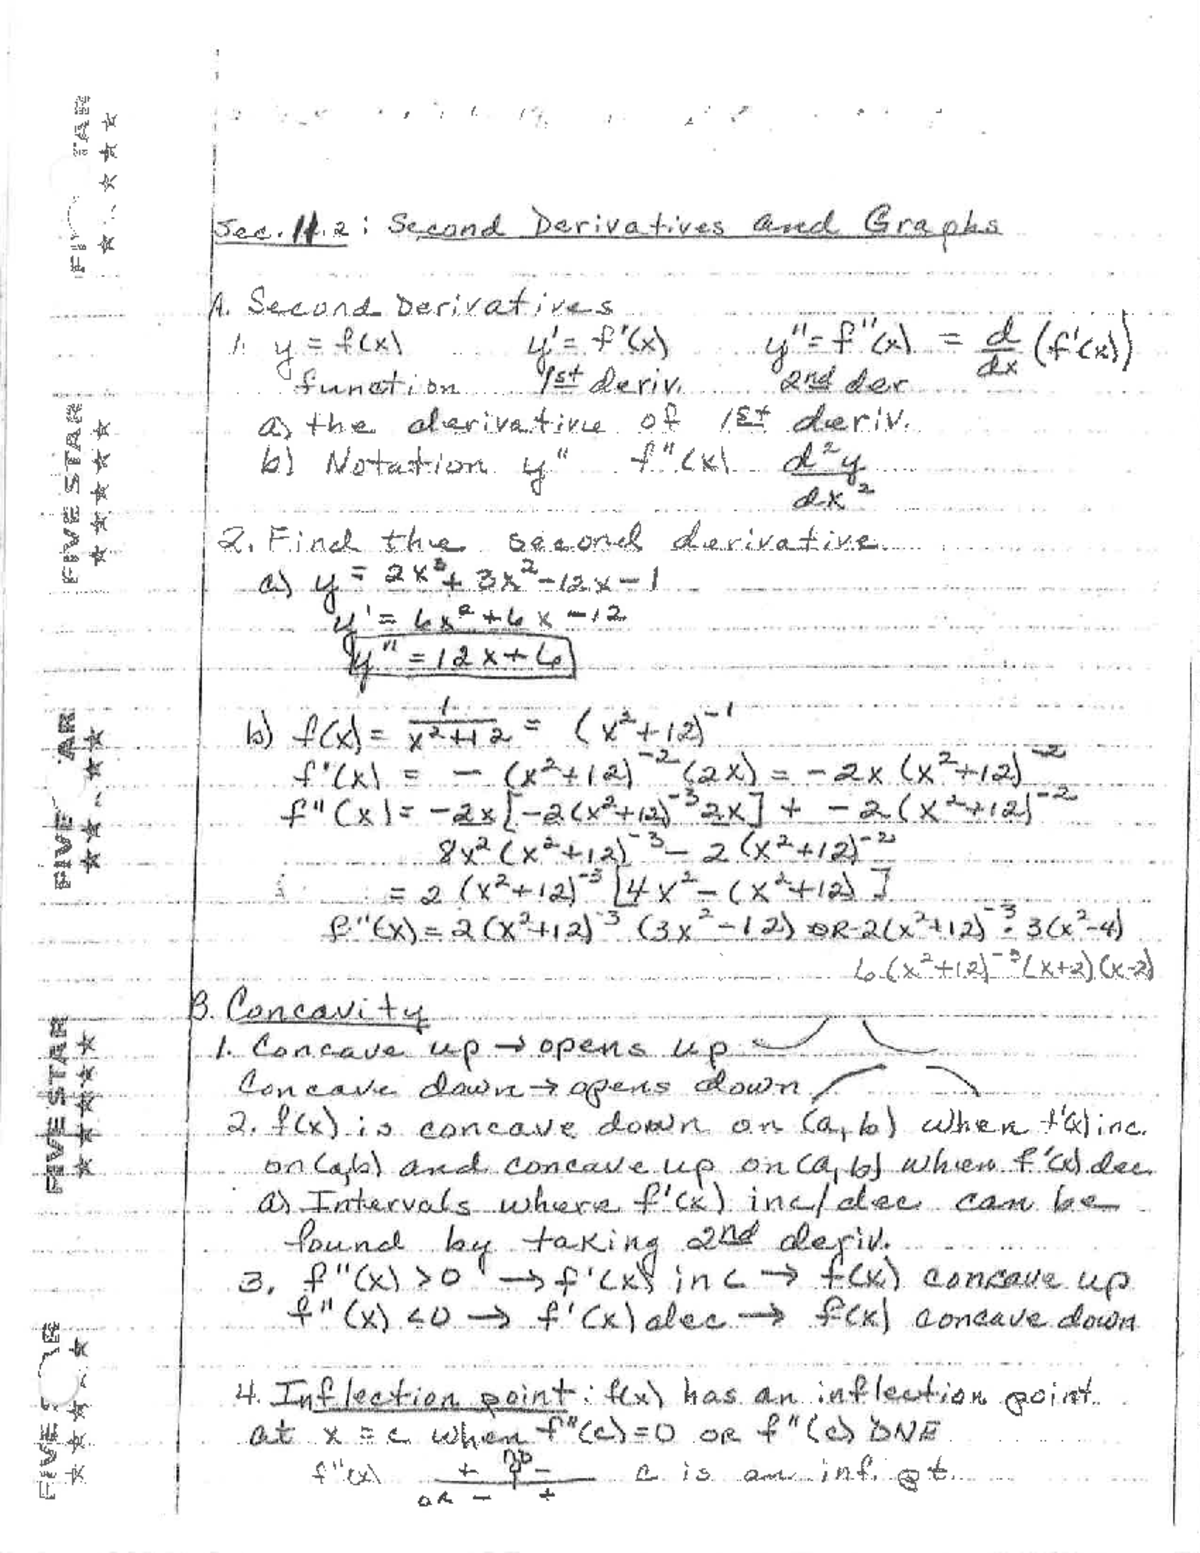 Sec. 11.2: Second Derivatives and Graphs
A. Second Derivatives
1. y = f(x) y' = f'(x) y'' = f''(x) = d/dx (f'(x))
function 1st deriv. 2nd der
a) the derivative of 1st deriv.
b) Notation y'' f''(x) d²y/dx²
2. Find the second derivative
a) y = 2x³ + 3x² - 12x - 1
y' = 6x² + 6x - 12
y'' = 12x + 6
b) f(x) = 1/(x²+12) = (x²+12)⁻¹
f'(x) = - (x²+12)⁻²(2x) = -2x(x²+12)⁻²
f''(x) = -2x[-2(x²+12)⁻³2x] + -2(x²+12)⁻²
8x²(x²+12)⁻³ - 2(x²+12)⁻²
= 2(x²+12)⁻³[4x² - (x²+12)]
f''(x) = 2(x²+12)⁻³(3x²-12) OR 2(x²+12)⁻³·3(x²-4)
6(x²+12)⁻³(x+2)(x-2)
B. Concavity
1. Concave up → opens up
Concave down → opens down
2. f(x) is concave down on (a,b) when f'(x) inc.
on (a,b) and concave up on (a,b) when f'(x) dec
a) Intervals where f'(x) inc/dec can be
found by taking 2nd deriv.
3. f''(x) > 0 → f'(x) inc → f(x) concave up
f''(x) < 0 → f'(x) dec → f(x) concave down
4. Inflection point: f(x) has an inflection point
at x = c when f''(c) = 0 OR f''(c) DNE
f''(x) + - c is an inf. pt.
OR - +
FIVE STAR
FIVE STAR